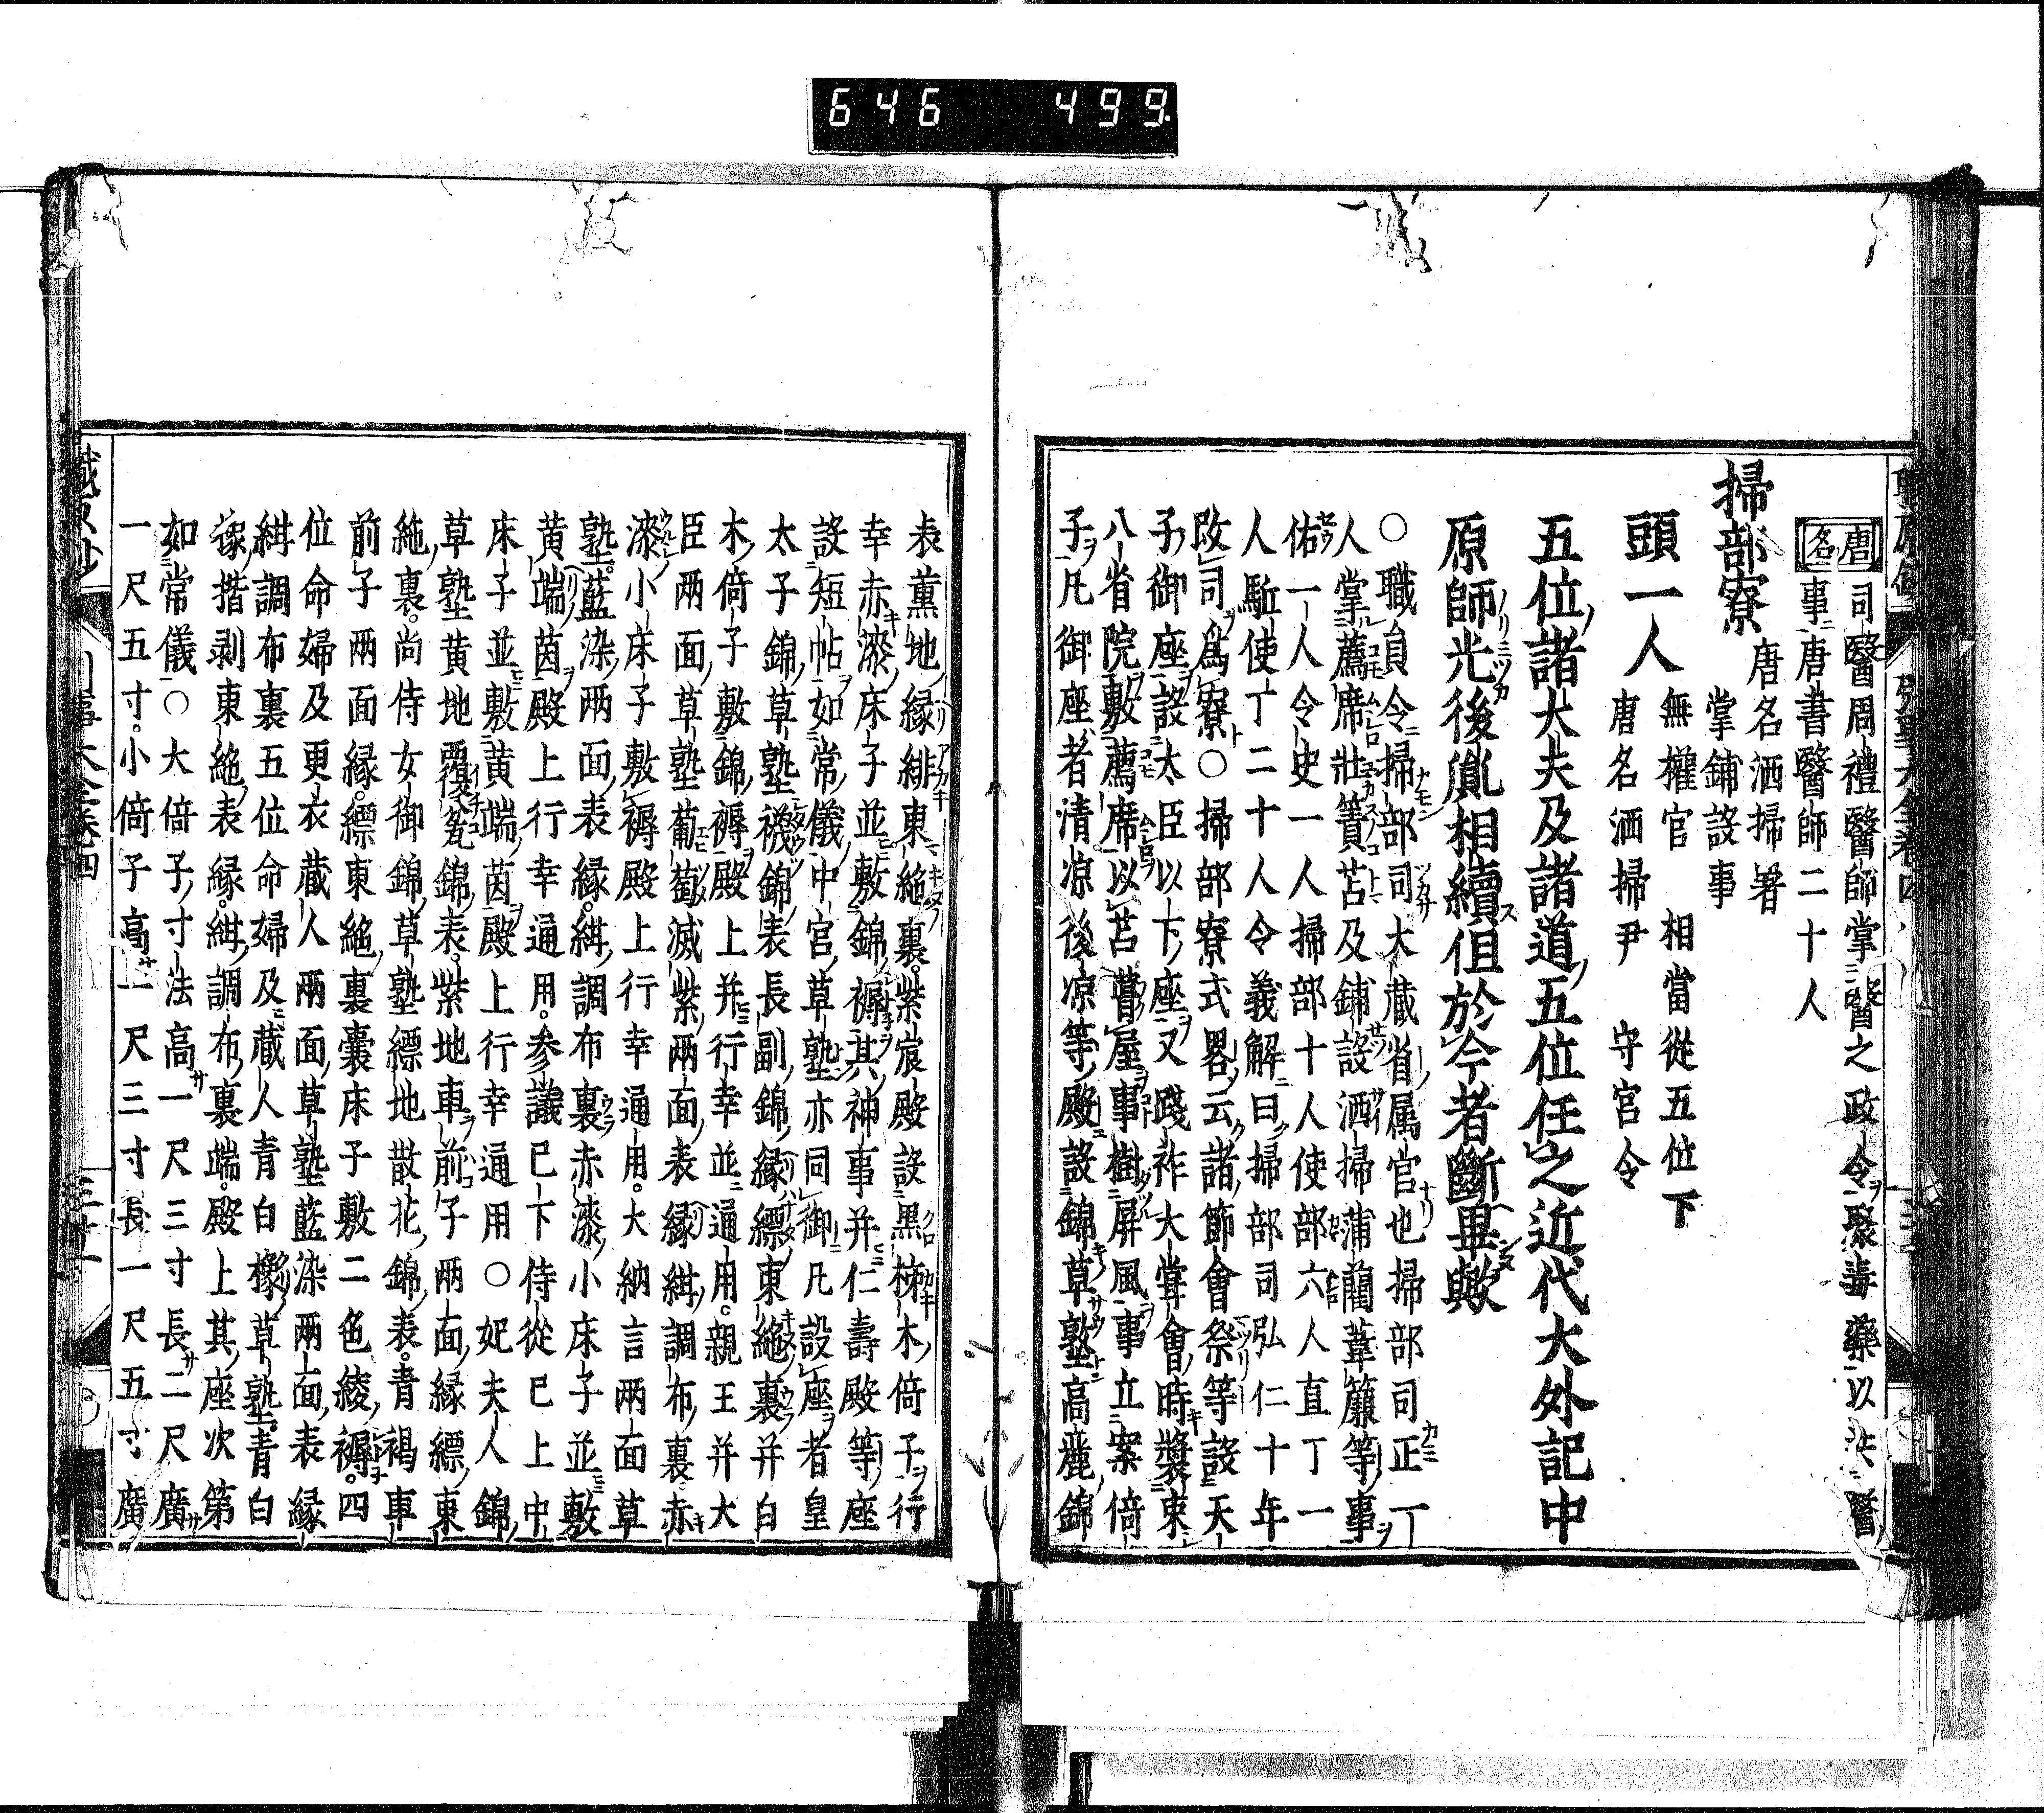 646 499
唐名 司醫周禮醫師掌醫之政令聚毒藥以共醫
事唐書醫師二十人
掃部寮 唐名洒掃署
掌鋪設事
頭一人 無權官 相當從五位下
唐名洒掃尹 守宮令
五位諸大夫及諸道五位任之近代大外記中
原師光後胤相續但於今者斷畢歟
○職員令掃部司大藏省属官也掃部司正一
人掌薦席牀簀苫及鋪設洒掃蒲藺葦簾等事
佑一人令史一人掃部十人使部六人直丁一
人駈使丁二十人令義解曰掃部司弘仁十年
改司爲寮○掃部寮式畧云諸節會祭等設天
子御座設太臣以下座又踐祚大甞會時裝束
八省院敷薦席以苫葺屋事樹屏風事立案倚
子凡御座者清凉後凉等殿設錦草墪高麗錦
表薫地緣緋東絁裏紫宸殿設黒柿木倚子行
幸赤漆床子並敷錦褥其神事并仁壽殿等座
設短帖如常儀中宮草墪亦同御凡設座者皇
太子錦草墪襪錦表長副錦緣縹東絁裏并白
木倚子敷錦褥殿上并行幸並通用親王并大
臣兩面草墪葡萄滅紫兩面表緣紺調布裏赤
漆小床子敷褥殿上行幸通用大納言兩面草
墪藍染兩面表緣紺調布裏赤漆小床子並敷
黄端茵殿上行幸通用參議已下侍從已上中
床子並敷黄端茵殿上行幸通用○妃夫人錦
草墪黄地覆瓮錦表紫地車前子兩面緣縹東
絁裏尚侍女御錦草墪縹地散花錦表青褐車
前子兩面緣縹東絁裏囊床子敷二色綾褥四
位命婦及更衣藏人兩面草墪藍染兩面表緣
紺調布裏五位命婦及藏人青白橡草墪青白
橡揩剥東絁表緣紺調布裏端殿上其座次第
如常儀○大倚子寸法高一尺三寸長二尺廣
一尺五寸小倚子高一尺三寸長一尺五寸廣